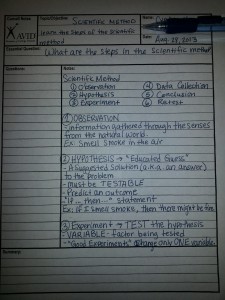 Cornell Notes
Topic/Objective:
SCIENTIFIC METHOD
Name:
AVID
Learn the steps of the scientific
method
Date: Aug. 28, 2013
Essential Question:
What are the steps in the scientific method
Questions:
Notes:
Scientific Method
① Observation ④ Data Collection
② Hypothesis ⑤ Conclusion
③ Experiment ⑥ Retest
① OBSERVATION
-Information gathered through the senses
from the natural world.
Ex: Smell smoke in the air
② HYPOTHESIS → "Educated Guess"
-A suggested Solution (a.k.a. an answer)
to the problem
-Must be TESTABLE
-Predict an outcome
-"If... then..." statement
Ex: If I smell smoke, then there might be fire.
③ Experiment → TEST the hypothesis
-VARIABLE - factor being tested
-"Good Experiments" change only ONE variable.
Summary: